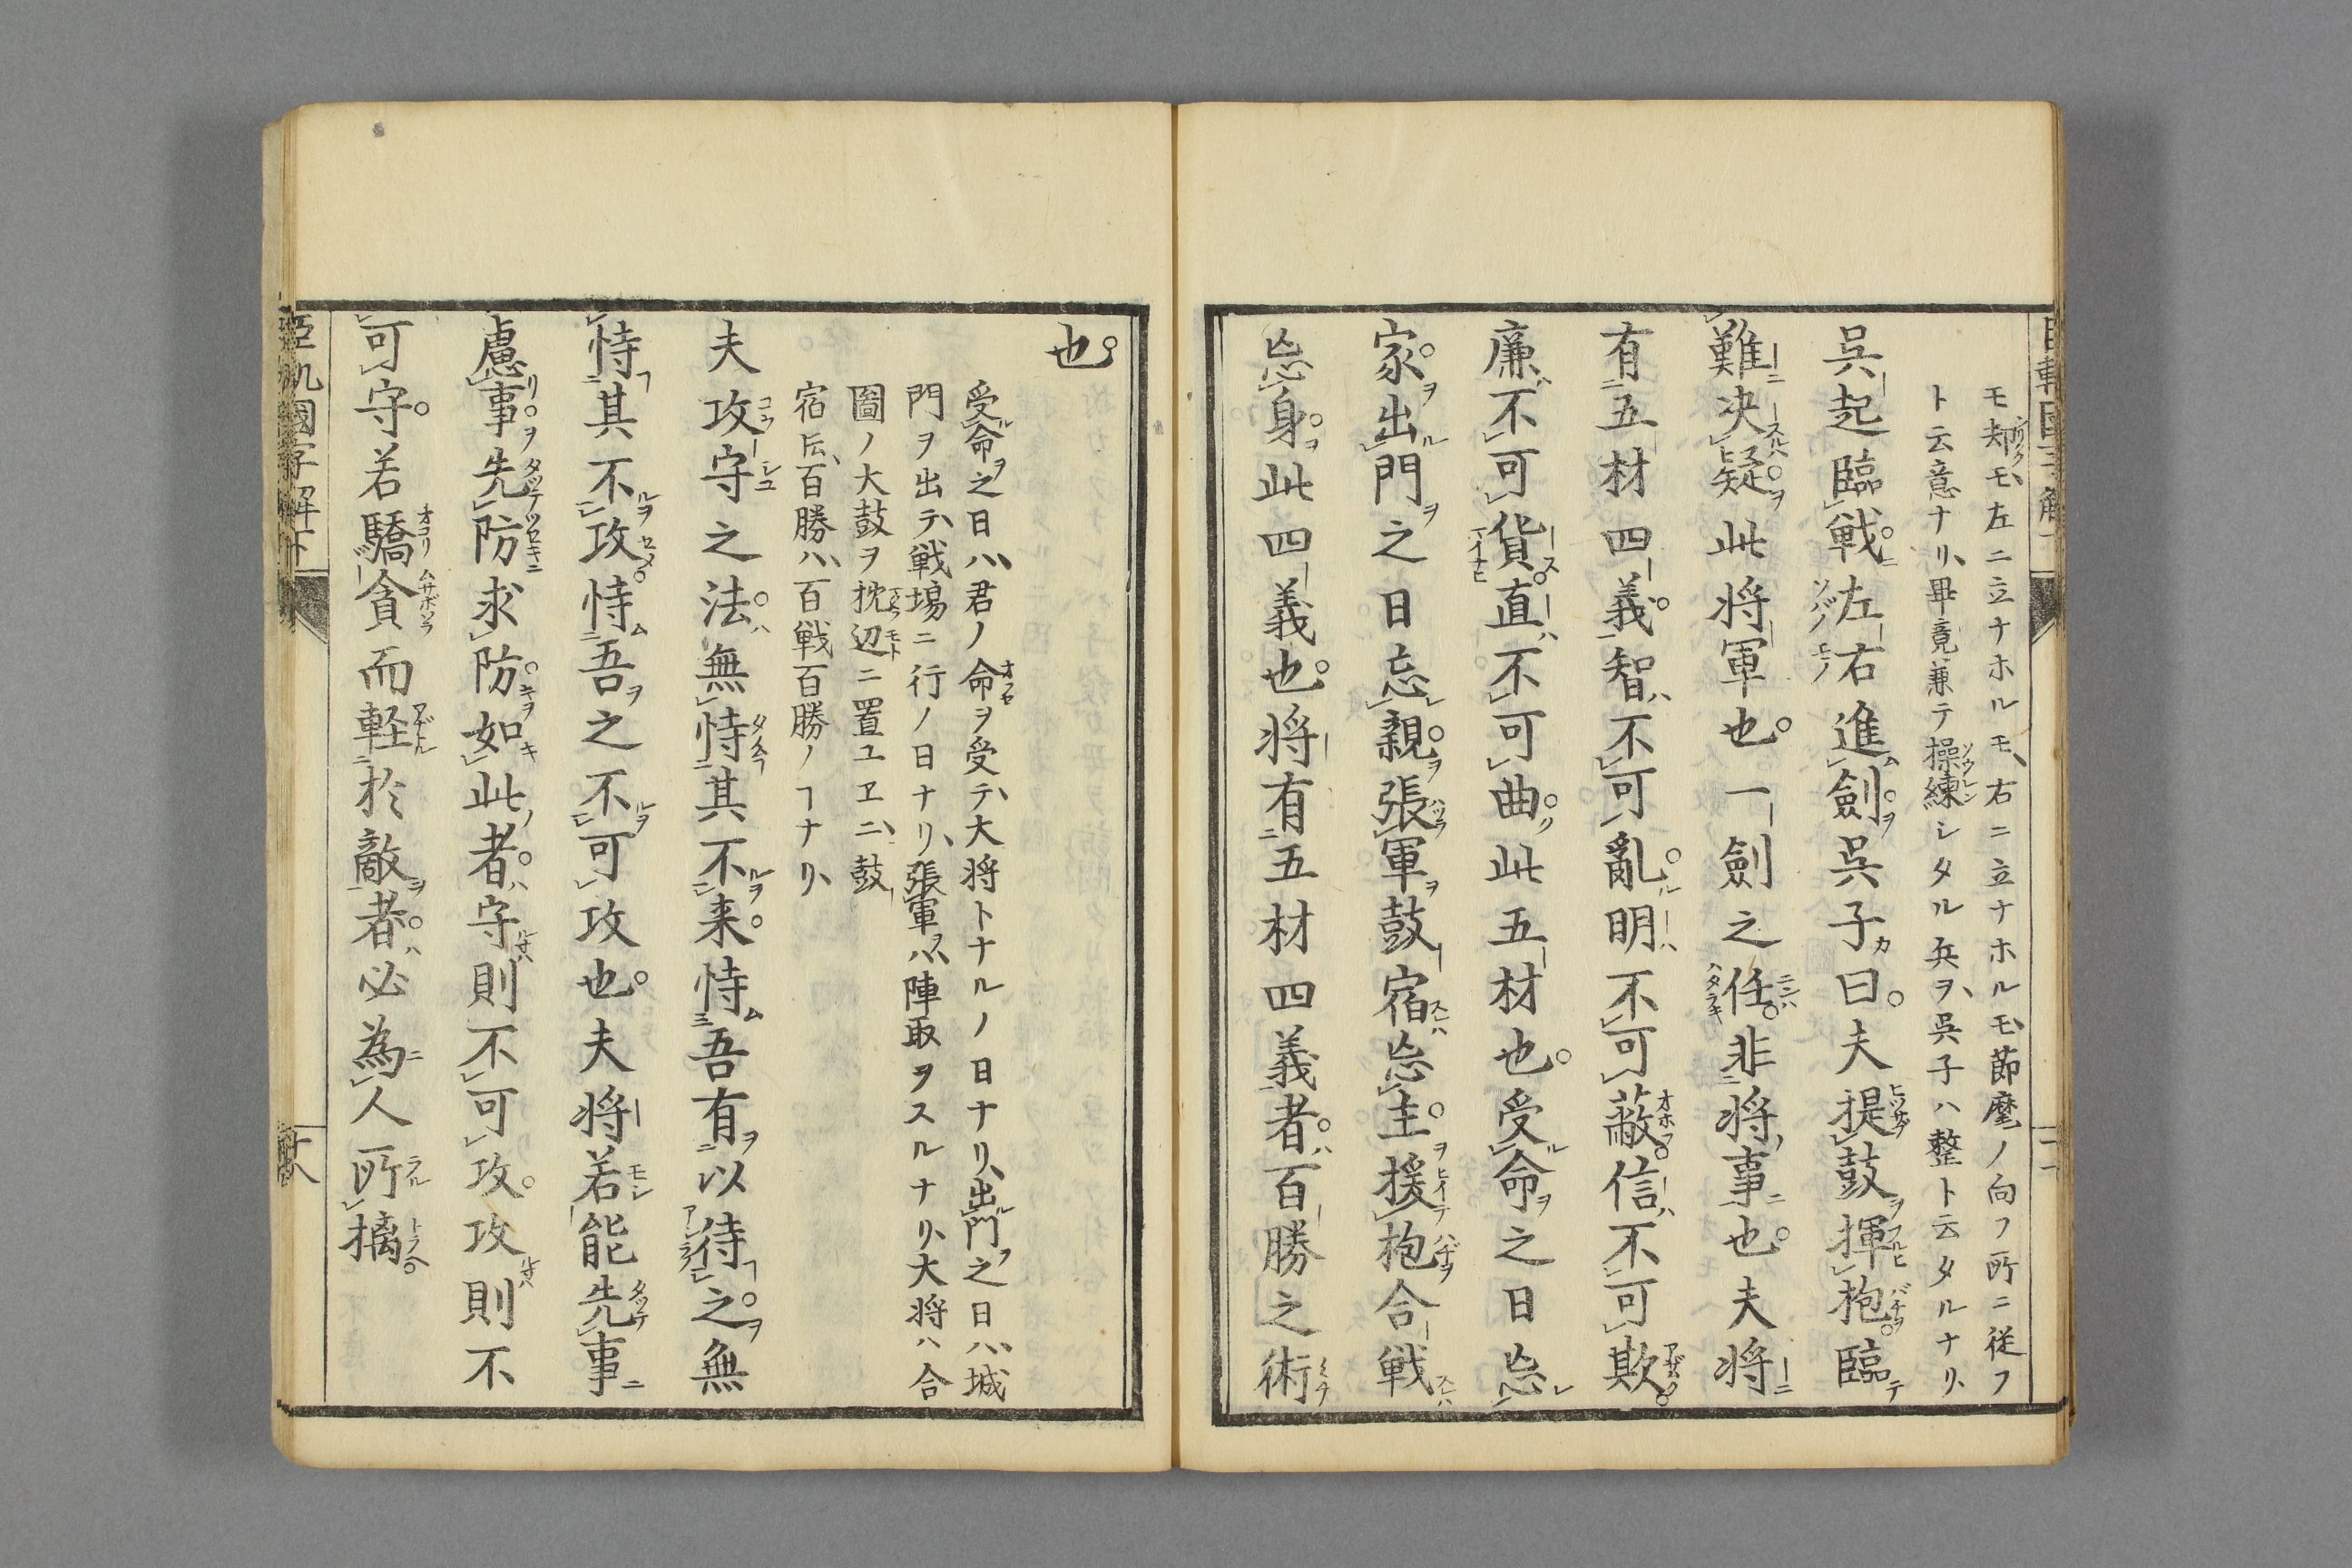 モ却モ、左ニ立ナホルモ、右ニ立ナホルモ、節麾ノ向フ所ニ従フ
ト云意ナリ、畢竟兼テ操練シタル兵ヲ、呉子ハ整ト云タルナリ、
呉起臨戦左右進劍呉子曰夫提鼓揮枹臨
難决疑此将軍也一劍之任非将事也夫将
有五材四義智不可亂明不可蔽信不可欺
廉不可貨直不可曲此五材也受命之日忘
家出門之日忘親張軍鼓宿忘主援枹合戦
忘身此四義也将有五材四義者百勝之術
也
受命之日ハ、君ノ命ヲ受テ、大将トナルノ日ナリ、出門之日ハ、城
門ヲ出テ、戦塲ニ行ノ日ナリ、張軍ハ、陣取ヲスルナリ、大将ハ合
圖ノ大鼓ヲ枕辺ニ置ユヱニ、鼓
宿㆑、百勝ハ、百戦百勝ノヿナリ、
夫攻守之法無恃其不来恃吾有以待之無
恃其不攻恃吾之不可攻也夫将若能先事
慮事先防求防如此者守則不可攻攻則不
可守若驕貪而軽於敵者必為人所擒
國字解下